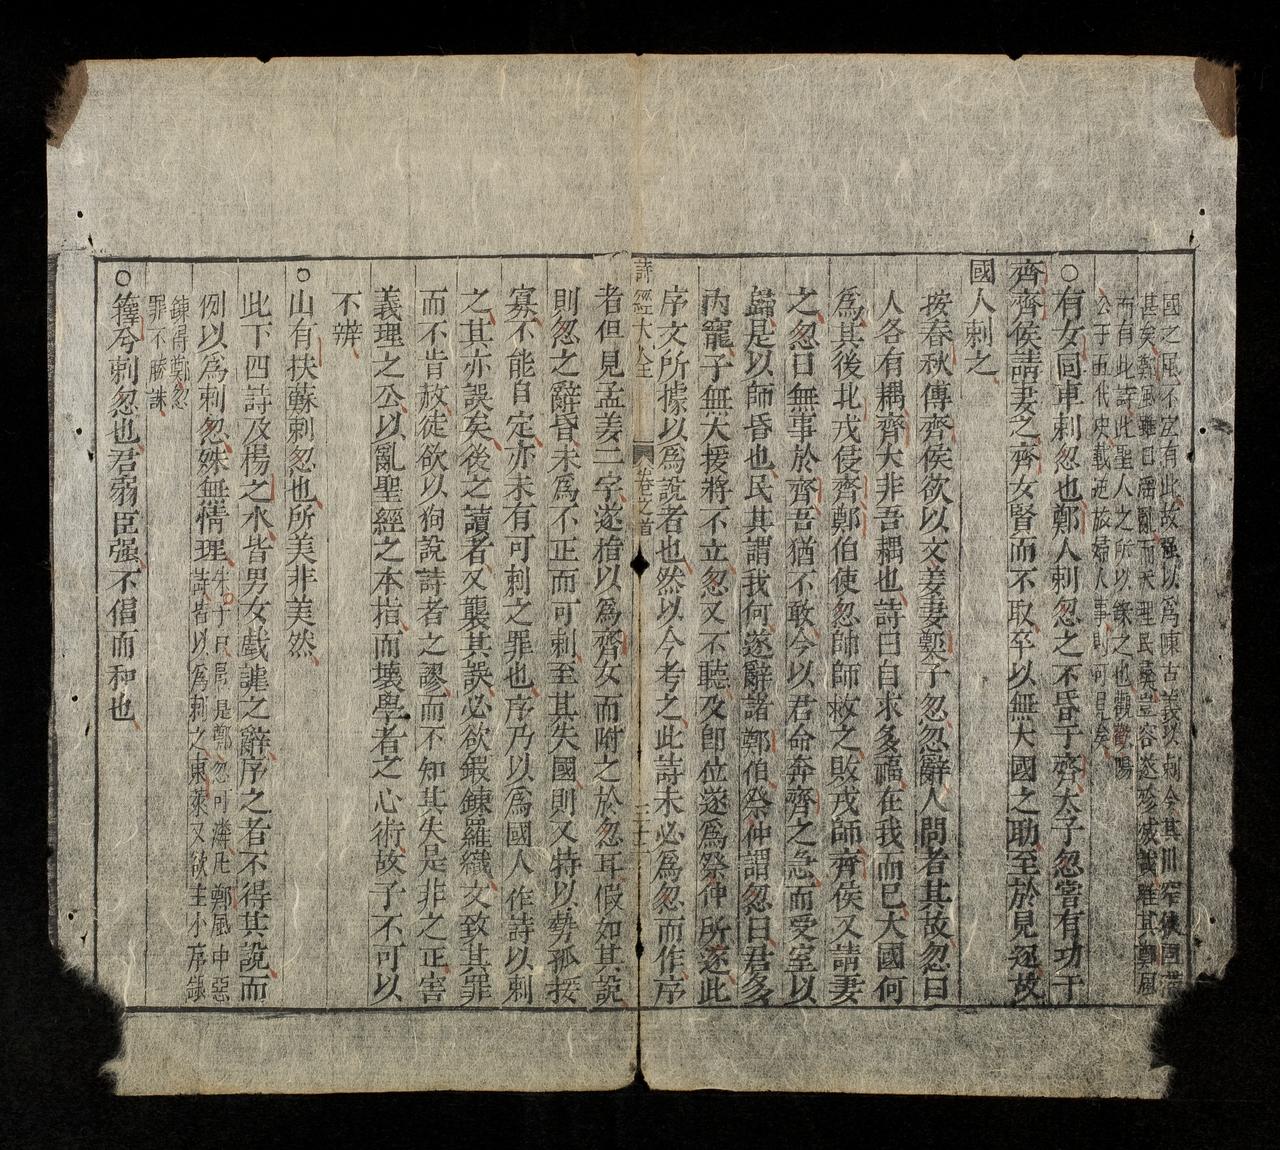 國之風不宜有此故强以爲陳古義以刺今其
甚矣鄭風雖曰淫亂而天理民彝豈容遂殄滅哉雖其鄭風
而有此詩此聖人之所以錄之也觀歐陽
公于五代史載逆旅婦人事則可見矣
○有女同車刺忽也鄭人刺忽之不昏于齊太子忽嘗有功于
齊齊侯請妻之齊女賢而不取卒以無大國之助至於見逐故
國人刺之
按春秋傳齊侯欲以文姜妻鄭太子忽忽辭人問者其故忽曰
人各有耦齊大非吾耦也詩曰自求多福在我而已大國何
爲其後北戎侵齊鄭伯使忽帥師救之敗戎師齊侯又請妻
之忽曰無事於齊吾猶不敢今以君命奔齊之急而受室以
歸是以師昏也民其謂我何遂辭諸鄭伯祭仲謂忽曰君多
內寵子無大援將不立忽又不聽及卽位遂爲祭仲所逐此
序文所據以爲說者也然以今考之此詩未必爲忽而作序
詩經大全 卷之首 二十二
者但見孟姜二字遂指以爲齊女而附之於忽耳假如其說
則忽之辭昏未爲不正而可刺至其失國則又特以勢孤援
寡不能自定亦未有可刺之罪也序乃以爲國人作詩以刺
之其亦誤矣後之讀者又襲其誤必欲鍜鍊羅織文致其罪
而不肯赦徒欲以狥說詩者之謬而不知其失是非之正害
義理之公以亂聖經之本指而壞學者之心術故予不可以
不辨
○山有扶蘇刺忽也所美非美然
此下四詩及揚之水皆男女戲謔之辭序之者不得其說而
例以爲刺忽殊無情理
朱子曰最是鄭忽可憐凡鄭風中惡
詩皆以爲刺之東萊又欲主小序鍛
鍊得鄭忽
罪不勝誅
○蘀兮刺忽也君弱臣强不倡而和也